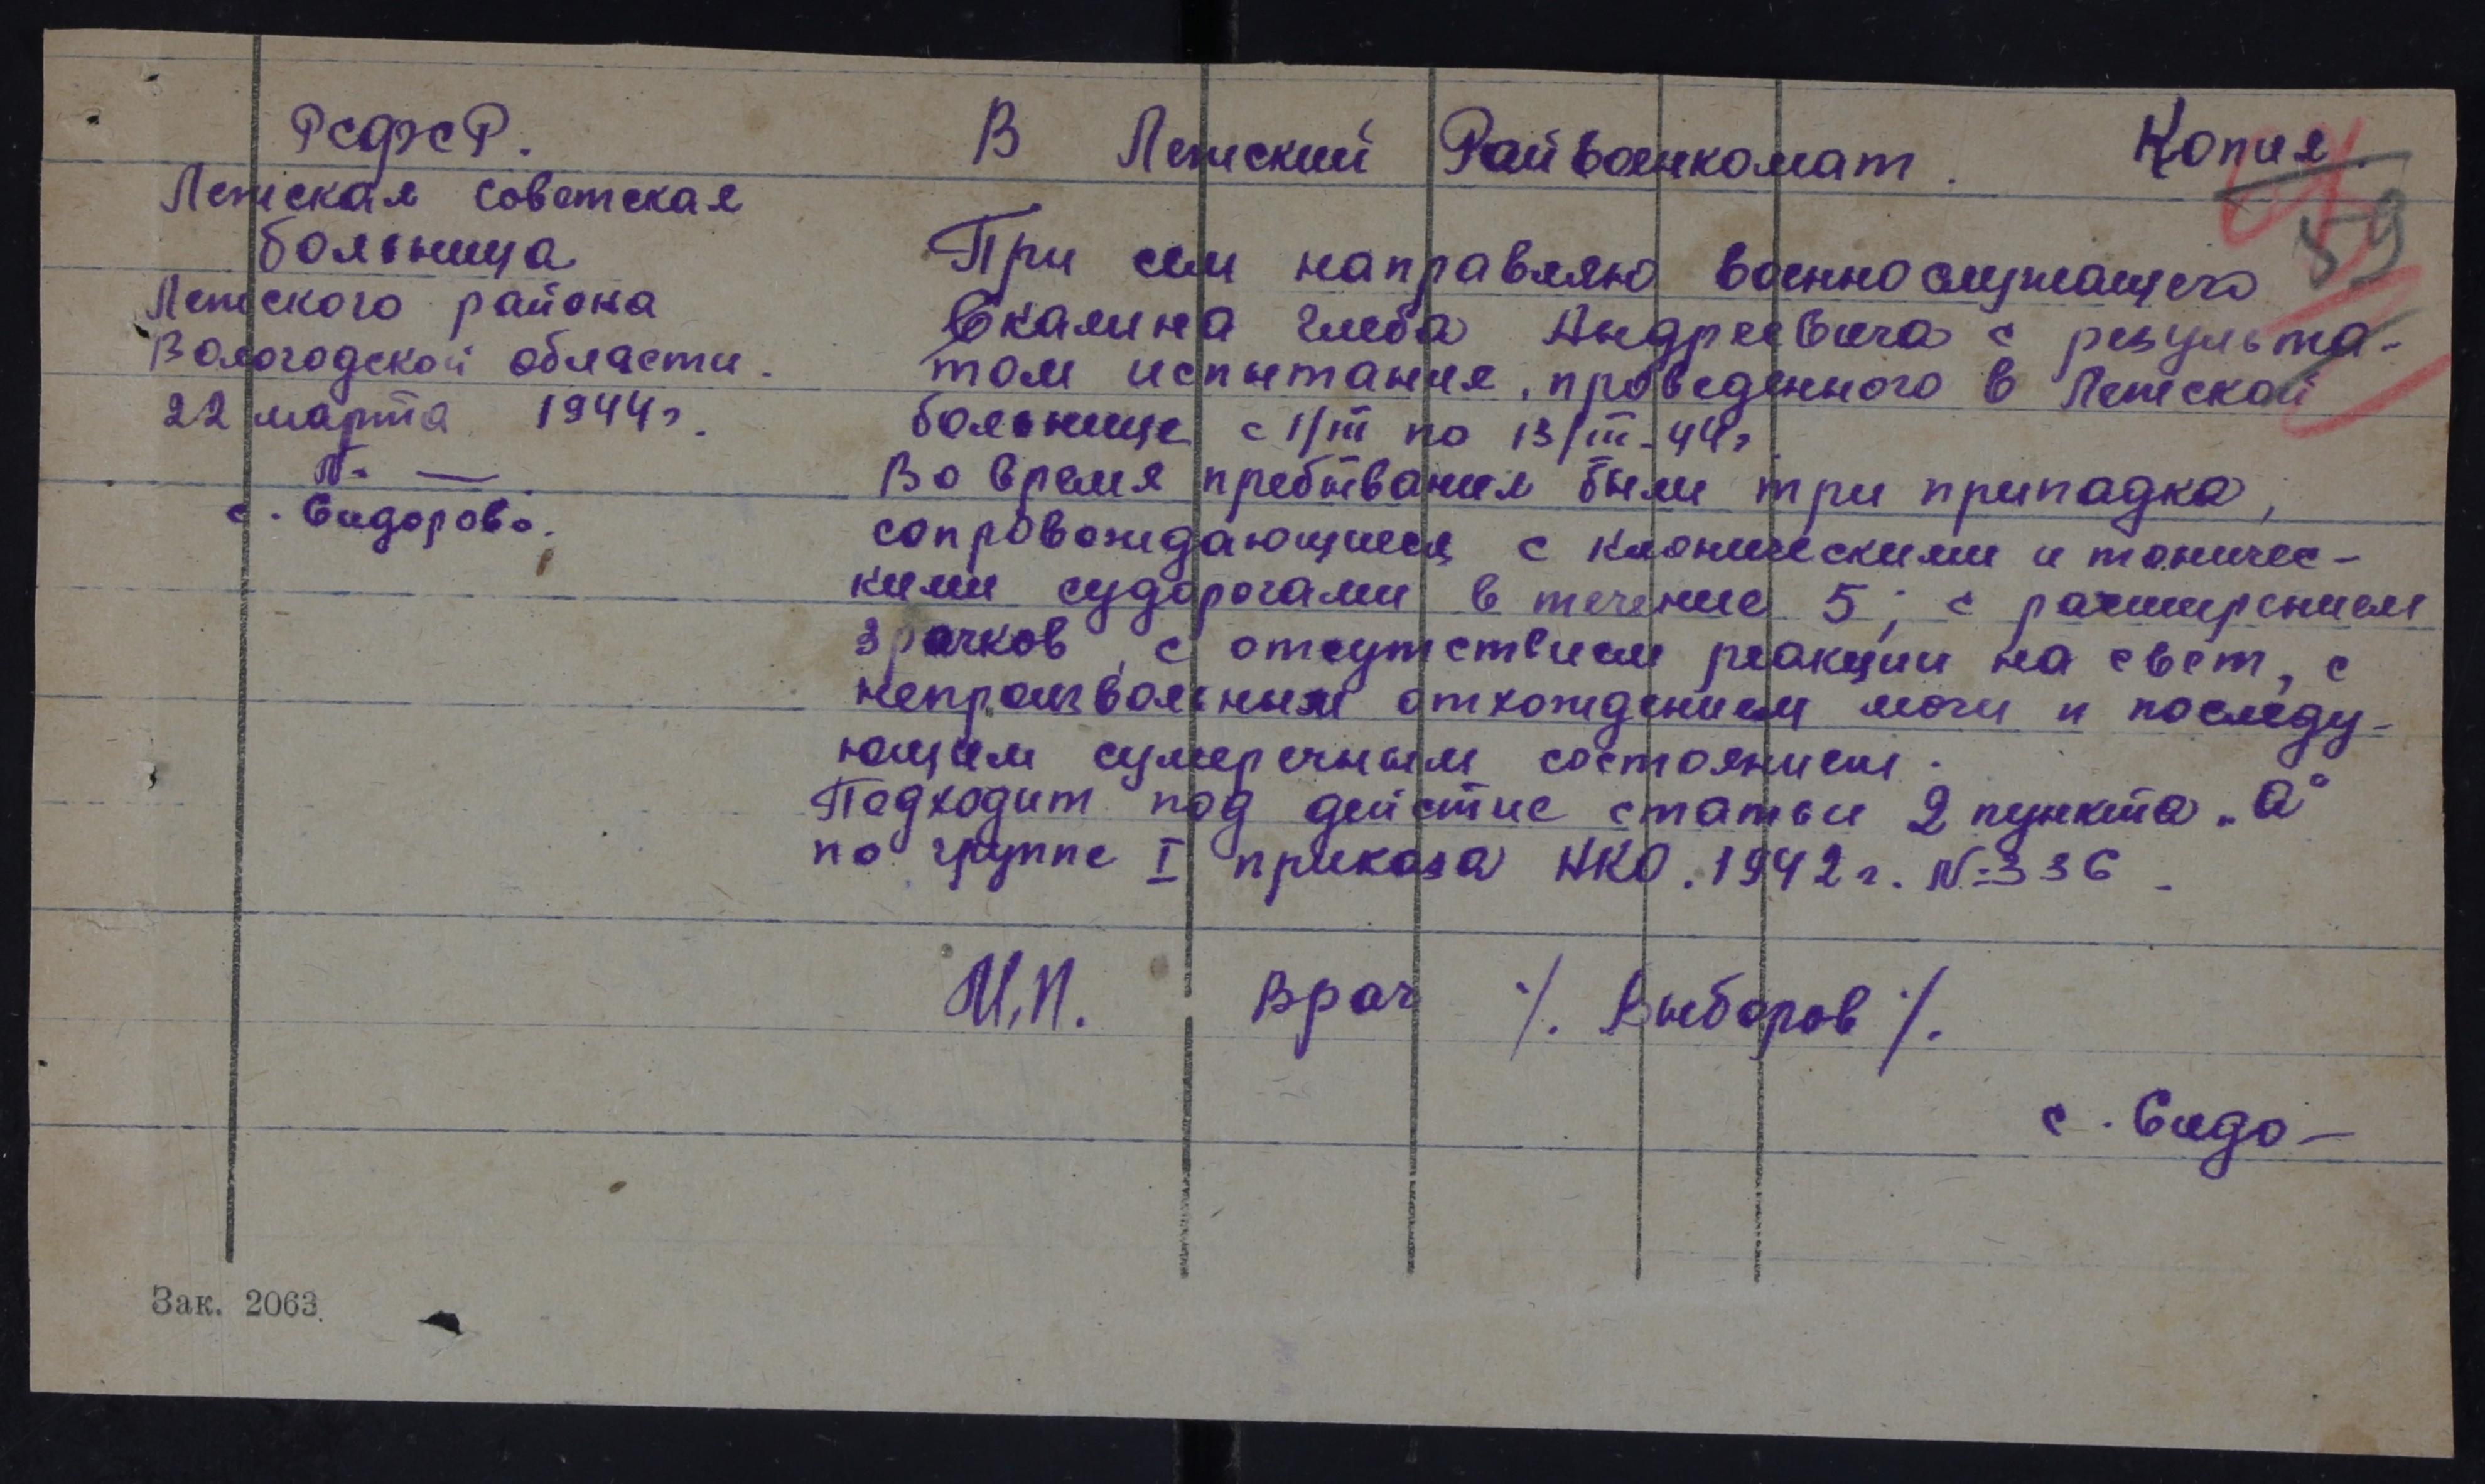 РСФСР.
Лежская советская
больница
Лежского района
Вологодской области.
22 марта 1944 г.
№ —
с. Сидорово.
В Лежский Райвоенкомат.
Копия.
59
При сем направляю военнослужащего
Скалина Глеба Андреевича с результа-
том испытания, проведенного в Лежской
больнице с 1/III по 13/III-44 г
Во время пребывания были три припадка,
сопровождающиеся с клоническими и тоничес-
кими судорогами в течение 5', с расширением
зрачков, с отсутствием реакции на свет, с
непроизвольным отхождением мочи и последу-
ющим сумеречным состоянием.
Подходит под дейстие статьи 2 пункта „а"
по группе I приказа НКО. 1942 г. № 336.
М.П. Врач /. Выборов /.
с. Сидо-
Зак. 2063.